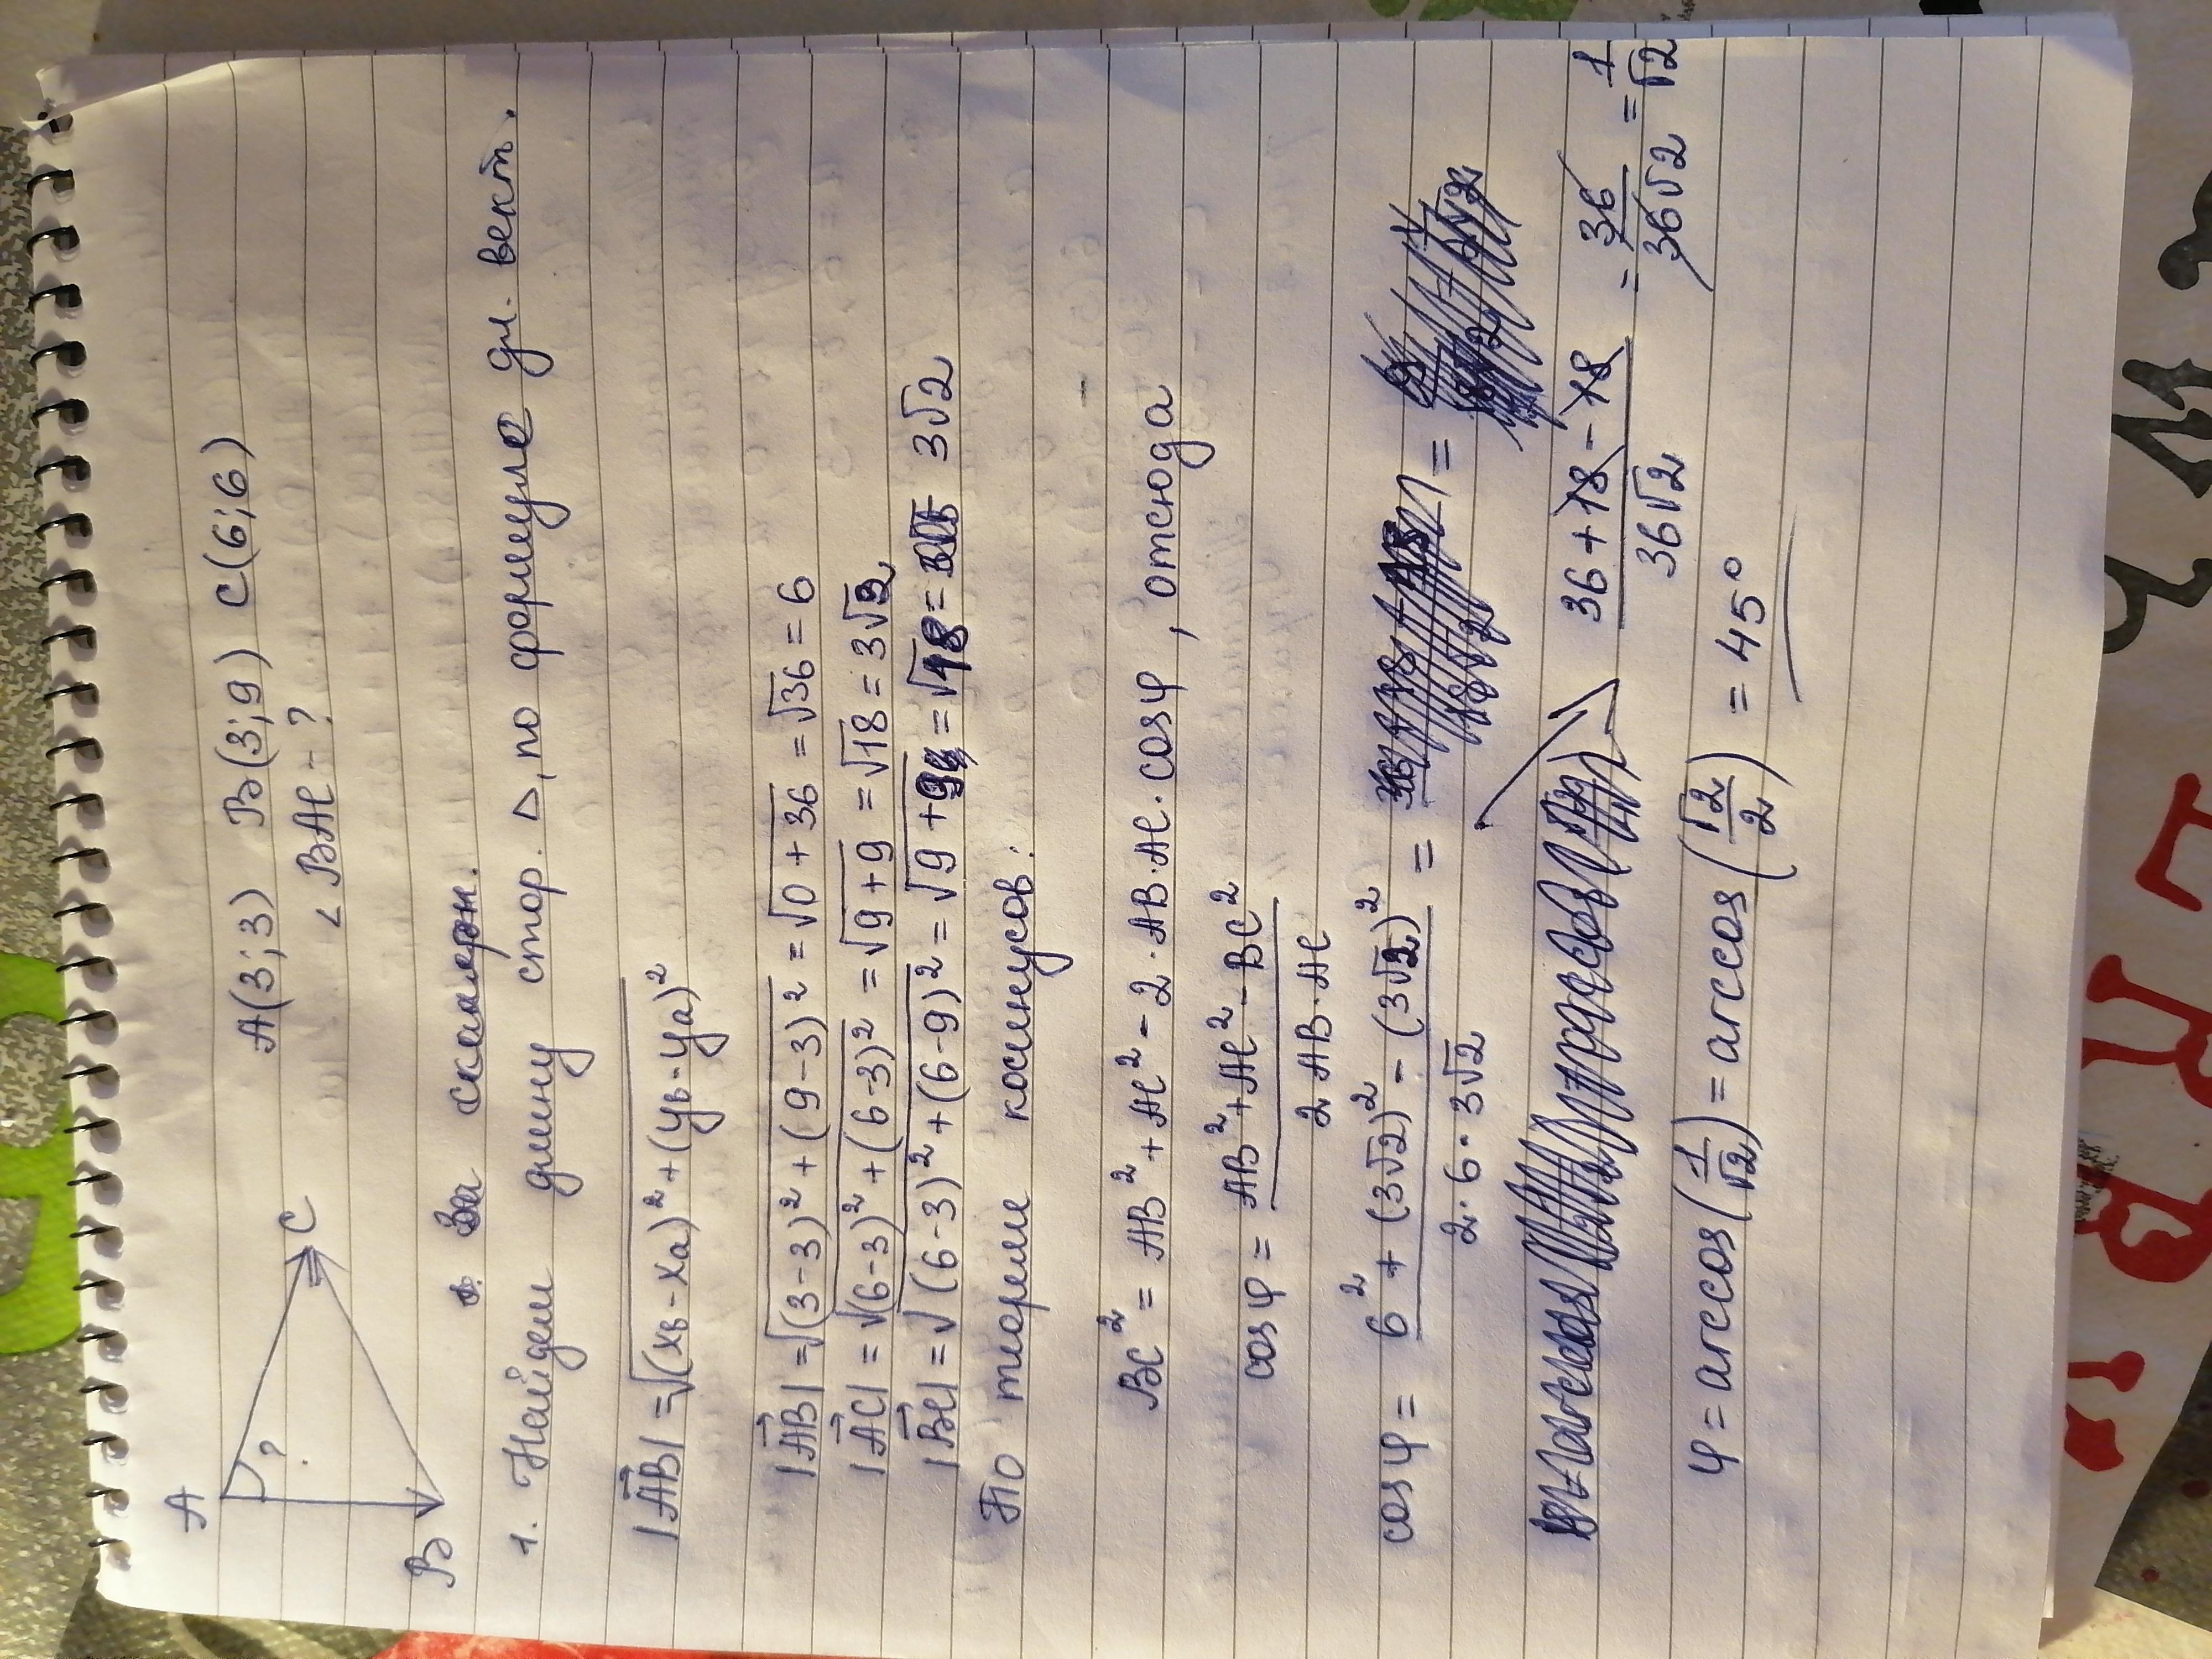 A(3;3) B(3;9) C(6;6)
< BAC - ?
A
?
C
B
скалярн.
1. Найдем длину стор. Δ, по формуле дл. вект.
|AB| = √(xв-xа)²+(yв-yа)²
|AB| = √(3-3)²+(9-3)² = √0+36 = √36 = 6
|AC| = √(6-3)²+(6-3)² = √9+9 = √18 = 3√2
|BC| = √(6-3)²+(6-9)² = √9+9 = √18 = 3√2
По теореме косинусов:
BC² = AB²+AC²-2·AB·AC·cosφ, отсюда
cosφ = AB²+AC²-BC² / 2·AB·AC
cosφ = 6²+(3√2)²-(3√2)² / 2·6·3√2 =
36+18-18 / 36√2 = 36 / 36√2 = 1 / √2
φ = arccos(1/√2) = arccos(√2/2) = 45°